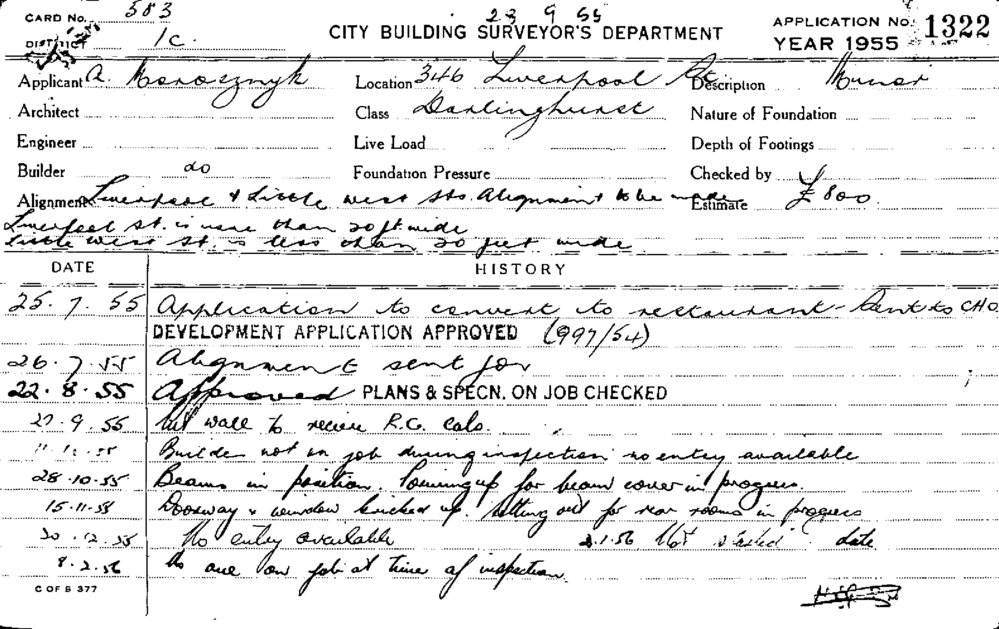 CARD No. 583
23 9 55
DISTRICT 1c.
CITY BUILDING SURVEYOR'S DEPARTMENT
APPLICATION No. 1322
YEAR 1955
Applicant A. Location 346 Liverpool St Description Minor
Architect Class Darlinghurst Nature of Foundation
Engineer Live Load Depth of Footings
Builder do Foundation Pressure Checked by
Alignment Liverpool & Little West Sts. Alignment to be made Estimate £800
Liverpool St. is more than 20 ft. wide
Little West St. is less than 20 feet wide
DATE HISTORY
25.7.55 Application to convert to restaurant - Sent to CHO.
DEVELOPMENT APPLICATION APPROVED (997/54)
26.7.55 Alignment sent for
22.8.55 Approved PLANS & SPECN. ON JOB CHECKED
27.9.55 wall to receive R.C. cols.
Builder not on job during inspection no entry available
28.10.55 Beams in position. up for beam cover in progress.
15.11.55 Doorway & window bricked up. Setting out for rear rooms in progress
30.12.55 No entry available 3.1.56 Not started date
8.2.56 No one on job at time of inspection.
C OF S 377